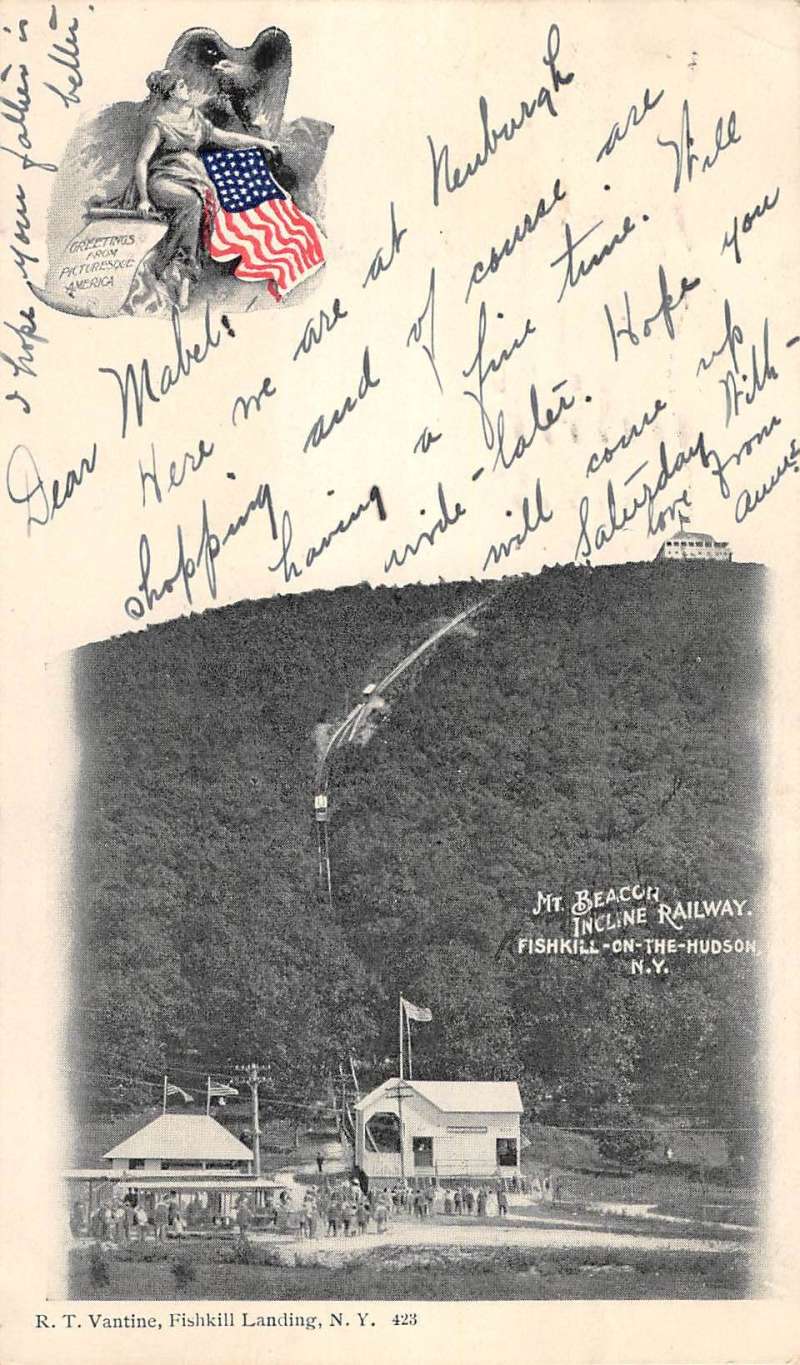 GREETINGS
FROM
PICTURESQUE
AMERICA
Dear Mabel:
Here we are at Newburgh
shopping and of course are
having a fine time. Will
write later. Hope you
will come up
Saturday. With
love from
I hope your father is
better.
MT. BEACON
INCLINE RAILWAY.
FISHKILL-ON-THE-HUDSON,
N.Y.
R. T. Vantine, Fishkill Landing, N. Y. 423